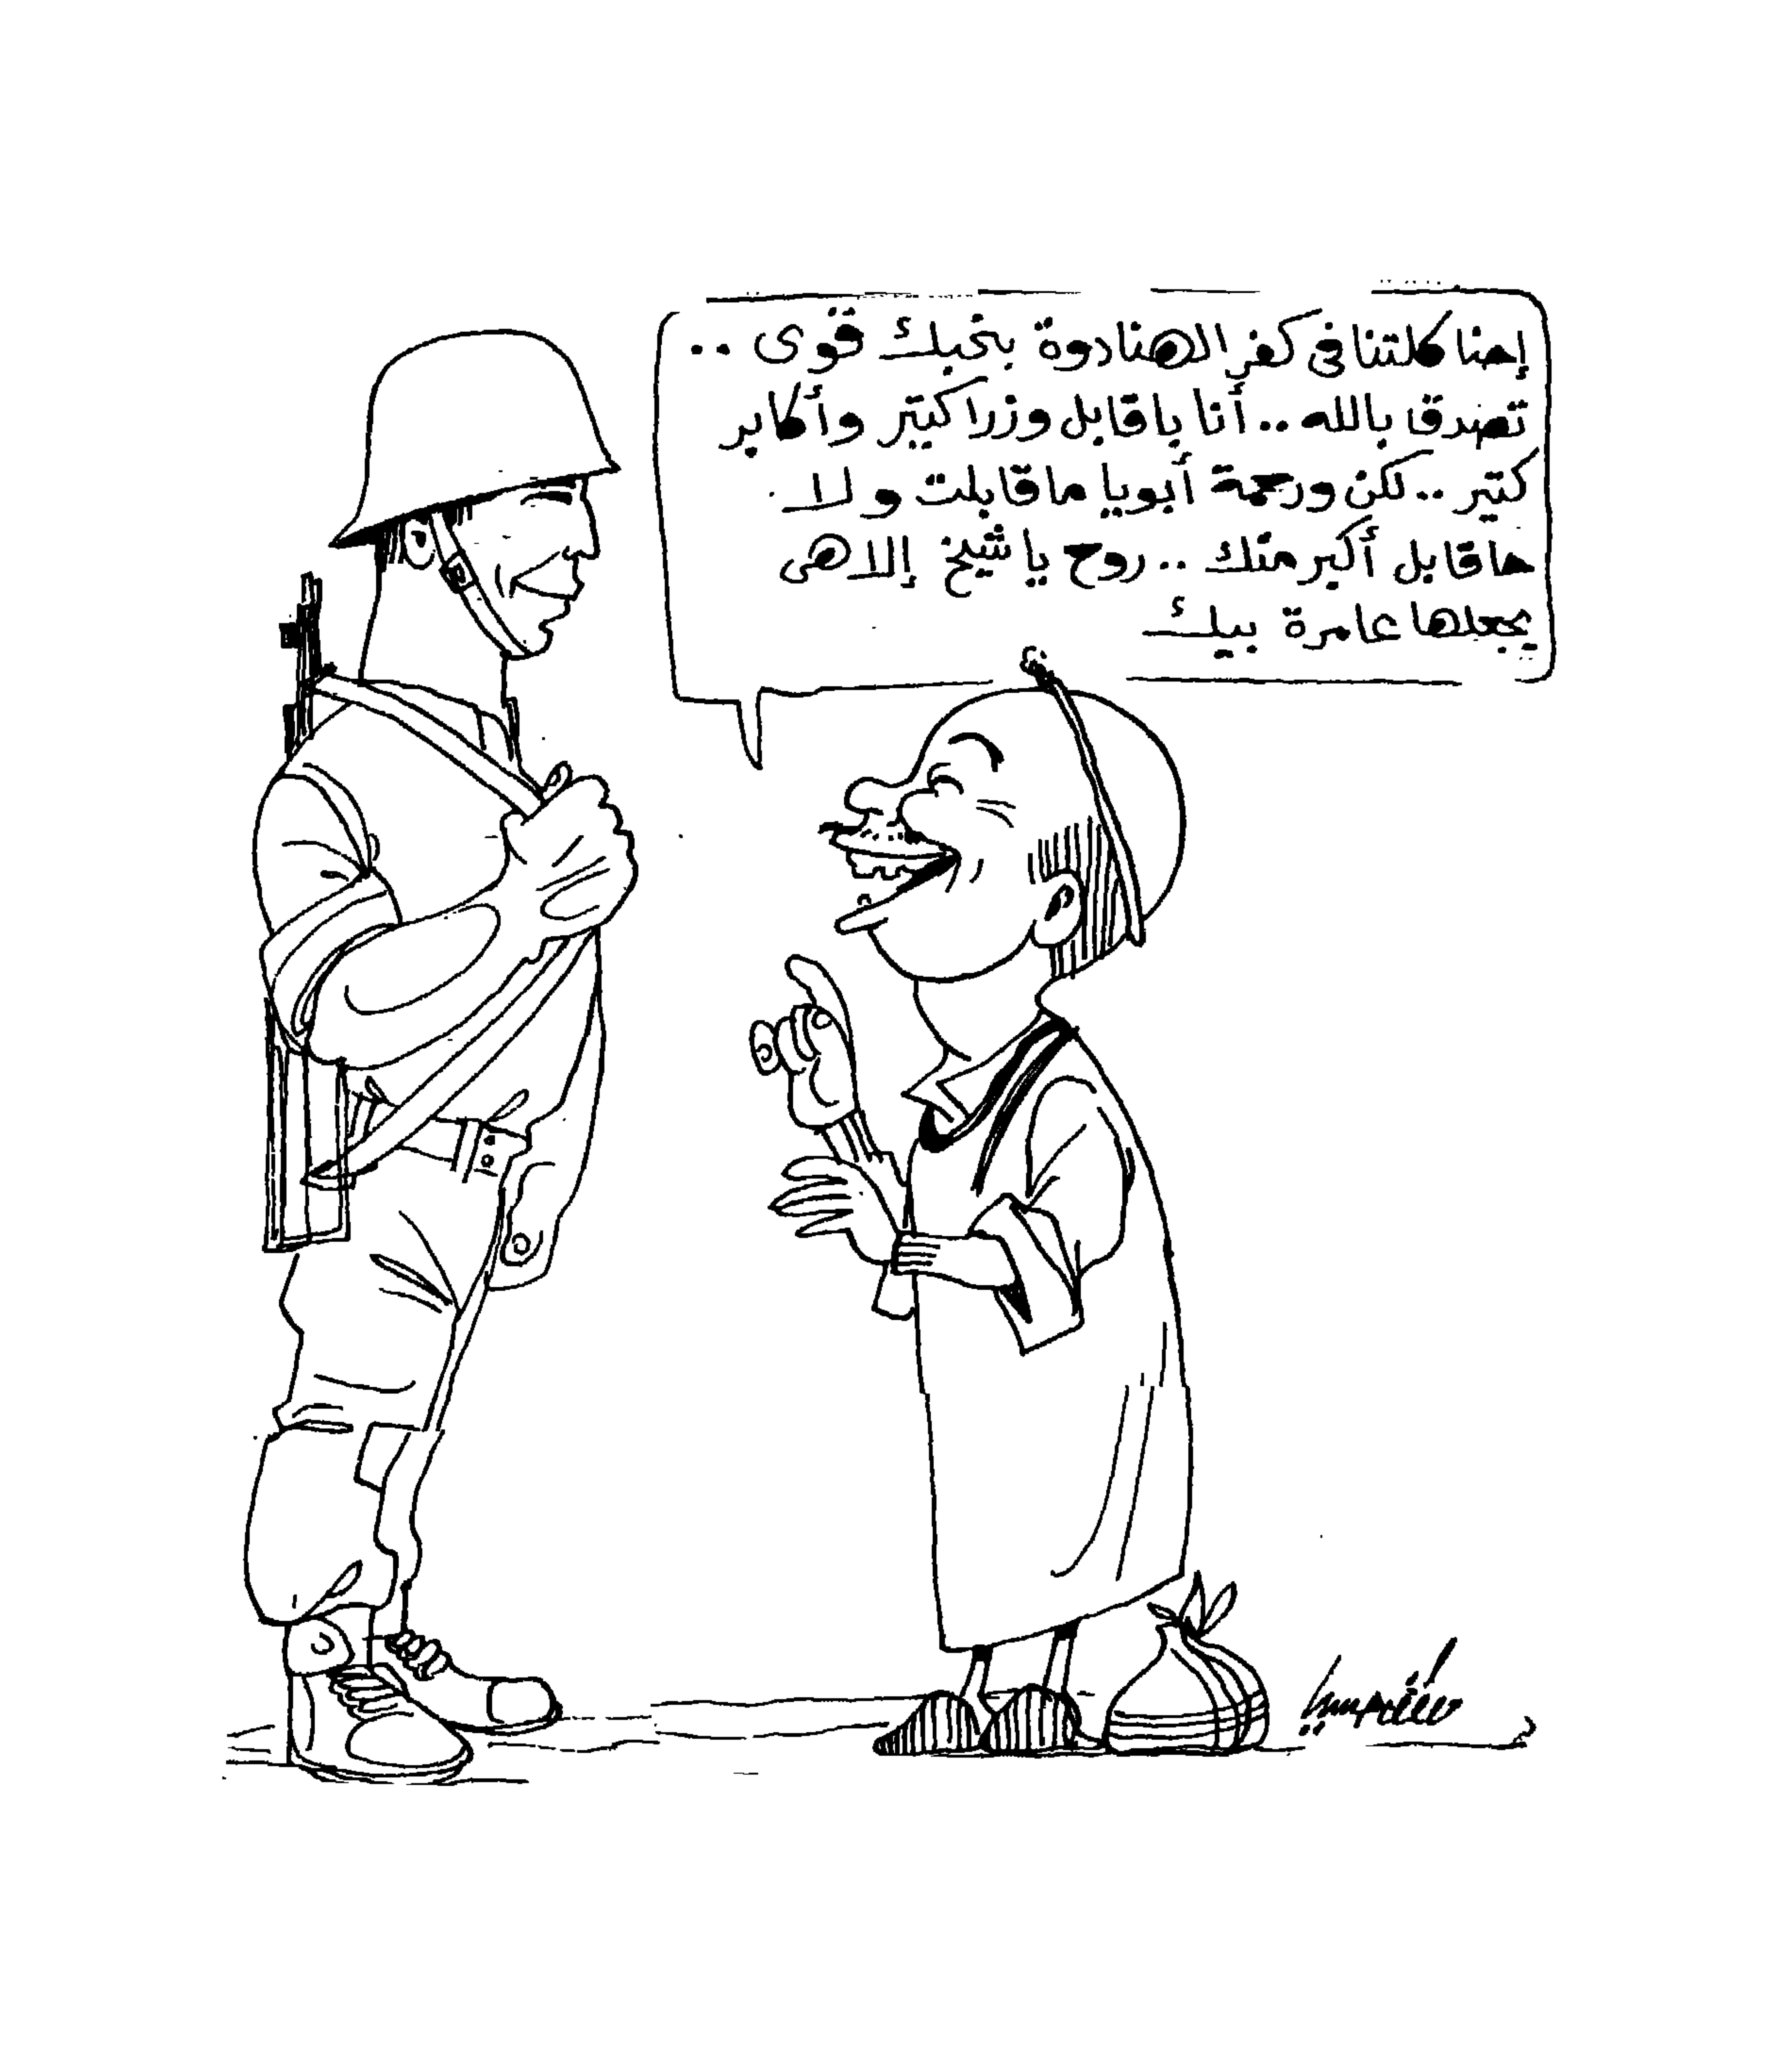 إحنا كلتنا فى كفر الهنادوة بنحبك قوى ..
تصدق بالله .. أنا باقابل وزرا كتير وأكابر
كتير .. لكن ورحمة أبويا ما قابلت ولا
حاقابل أكبر منك .. روح يا شيخ إلاهى
يجعلها عامرة بيك